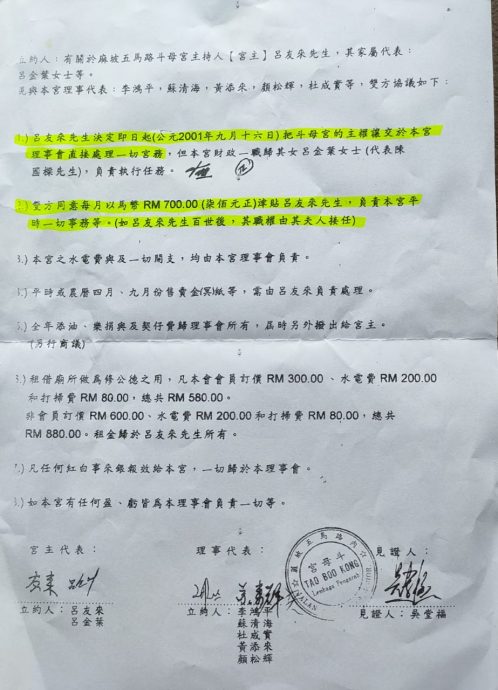 立約人：有關於麻坡五馬路斗母宮主持人【宮主】呂友采先生，其家屬代表：
呂金葉女士等。
見與本宮理事代表：李鴻平，蘇清海，黃添采，顏松輝，杜成實等，雙方協議如下：
1.) 呂友采先生決定即日起(公元2001年九月十六日)把斗母宮的主權讓交於本宮
理事會直接處理一切宮務，但本宮財政一職歸其女呂金葉女士(代表陳
國樑先生)，負責執行任務。
2.) 雙方同意每月以馬幣 RM 700.00 (柒佰元正)津貼呂友采先生，負責本宮平
時一切事務等。(如呂友采先生百世後，其職權由其夫人接任)
3.) 本宮之水電費與及一切開支，均由本宮理事會負責。
4.) 平時或農曆四月、九月份售賣金(冥)紙等，需由呂友采負責處理。
5.) 全年添油、樂捐與及契仔費歸理事會所有，屆時另外撥出給宮主。
(另行商議)
6.) 租借廟所做為修公德之用，凡本會會員訂價 RM 300.00、水電費 RM 200.00
和打掃費 RM 80.00，總共 RM 580.00。
非會員訂價 RM 600.00、水電費 RM 200.00 和打掃費 RM 80.00，總共
RM 880.00。租金歸於呂友采先生所有。
7.) 凡任何紅白事采銀報效給本宮，一切歸於本理事會。
8.) 如本宮有任何盈、虧皆為本理事會負責一切等。
宮主代表：
理事代表：
見證人：
麻坡五馬路內
斗母宮
TAO BOO KONG
Lembaga Pengarah
立約人：呂友采
呂金葉
立約人：李鴻平
蘇清海
杜成實
黃添采
顏松輝
見證人：吳堂福